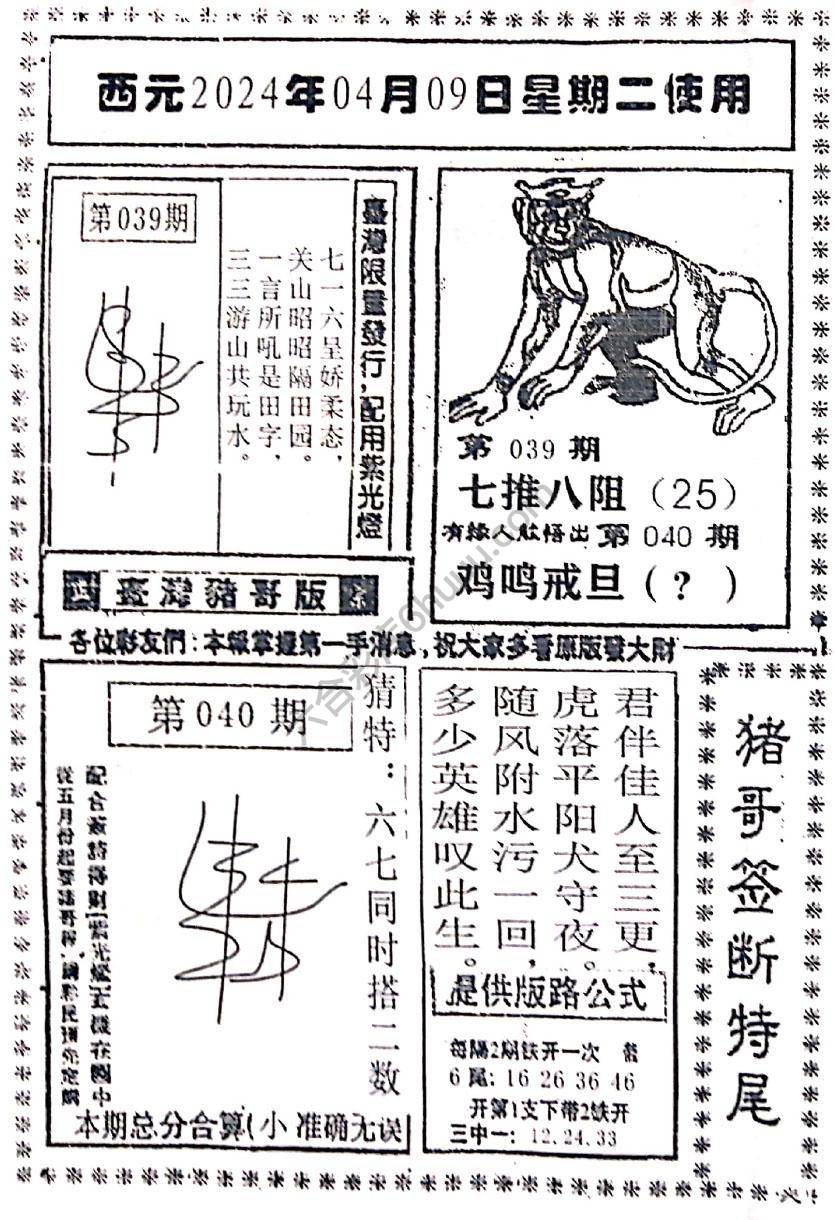 西元2024年04月09日星期二使用
第039期
臺灣限量發行，配用紫光燈
七一六呈娇柔态，
关山昭昭隔田园。
一言所吼是田字，
三三游山共玩水。
臺灣豬哥版
第 039 期
七推八阻（25）
有緣人能悟出第 040 期
鸡鸣戒旦（？）
各位彩友們：本報掌握第一手消息，祝大家多看原版發大財
第040期
猜特：六七同时搭二数
本期总分合算(小 准确无误
君伴佳人至三更，
虎落平阳犬守夜。
随风附水污一回，
多少英雄叹此生。
提供版路公式
每隔2期铁开一次
6尾：16 26 36 46
开第1支下带2铁开
三中一：12.24.33
猪哥签断特尾